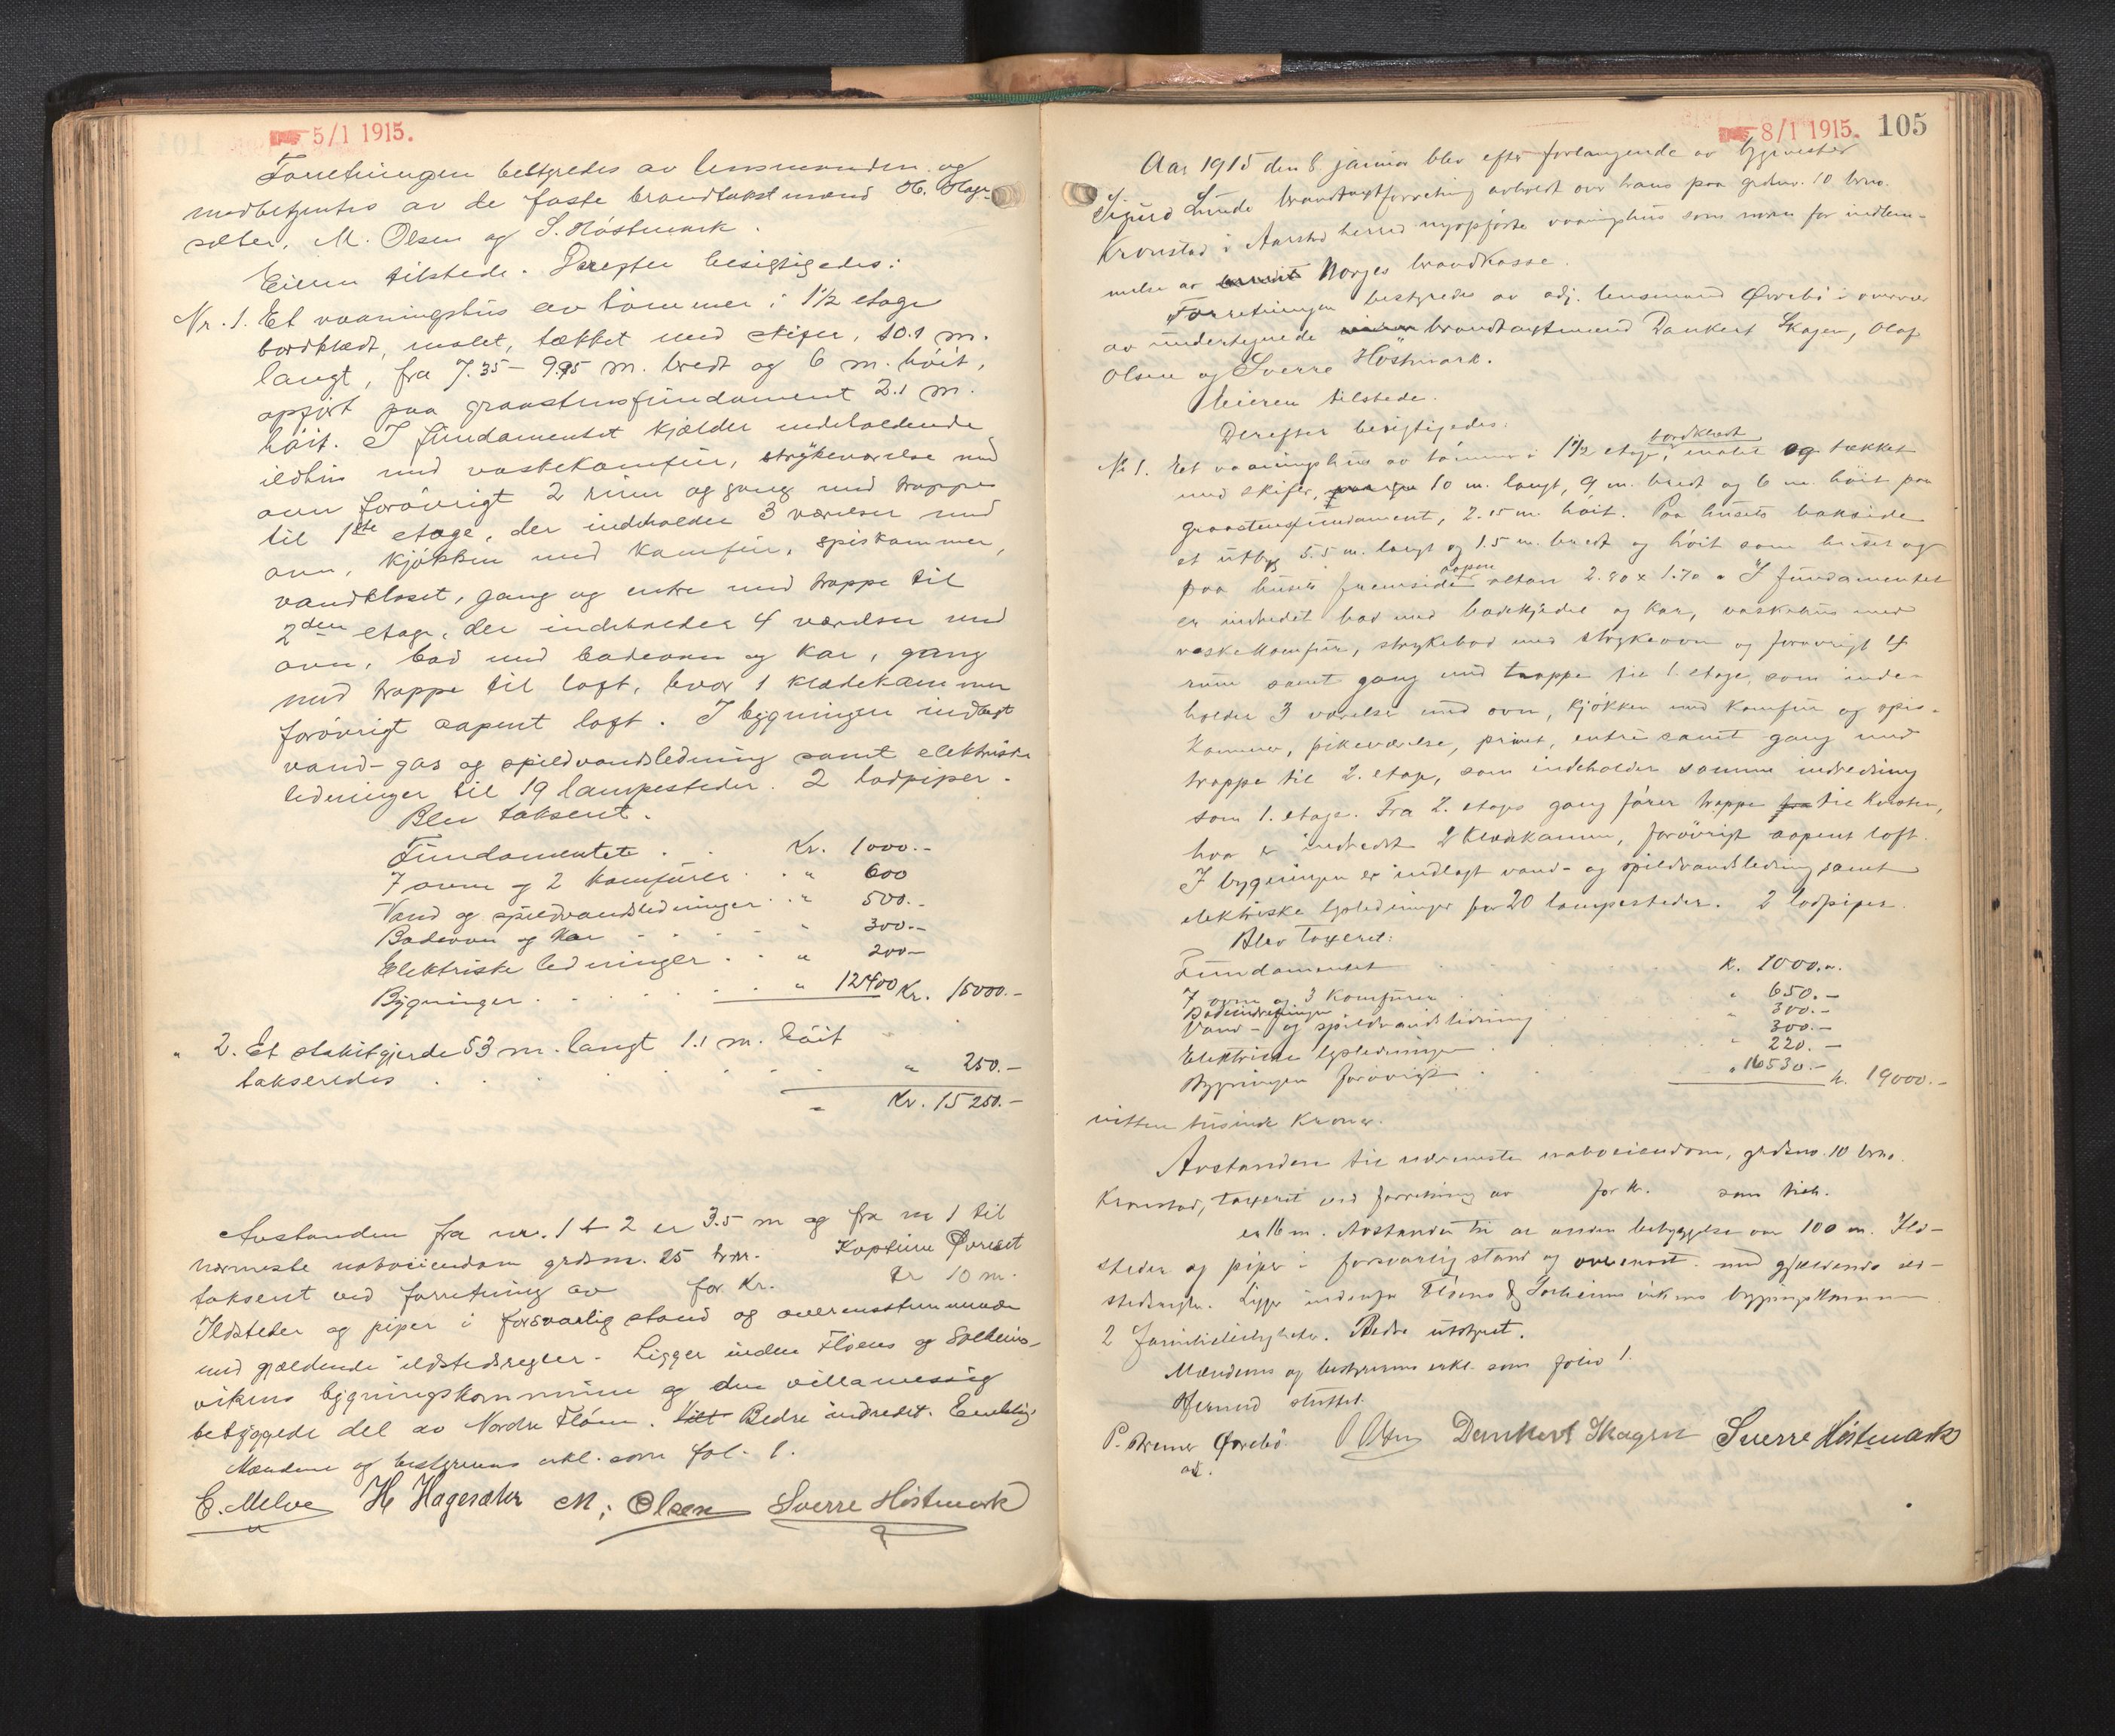 5/1 1915.
Forretningen bestyredes av lensmanden og
medbetjentes av de faste brandtakstmænd H. Hage-
sæter, M. Olsen og S. Høstmark.
Eieren tilstede. Derefter besigtigedes:
Nr. 1. Et vaaningshus av tømmer i 1½ etage
bordklædt, malet, tækket med skifer, 10.1 m.
langt, fra 7.35 – 9.95 m. bredt og 6 m. høit,
opført paa graastensfundament 2.1 m.
høit. I fundamentet kjælder indeholdende
ildhus med vaskekomfur, strykeværelse med
ovn forøvrigt 2 rum og gang med trappe
til 1ste etage, der indeholder 3 værelser med
ovn, kjøkken med komfur, spiskammer,
vandkloset, gang og entre med trappe til
2den etage, der indeholder 4 værelser med
ovn, bad med badeovn og kar, gang
med trappe til loft, hvor 1 klædekammer
forøvrigt aapent loft. I bygningen indlagt
vand- gas og spildvandsledning samt elektriske
ledninger til 19 lampesteder. 2 lodpiper.
Blev taksert.
Fundamentet . . Kr. 1000.-
7 ovne og 2 komfurer . . " 600
Vand og spildvandsledninger . . " 500.-
Badeovn og kar - - - - " 300.-
Elektriske ledninger . . " 200-
Bygninger . . . . . . " 12400 Kr. 15000.-
" 2. Et stakitgjerde 53 m. langt 1.1 m. høit
takseredes . . . . . . . " 250.-
" Kr. 15250.-
Avstanden fra nr. 1 t 2 er 3.5 m og fra nr 1 til
nærmeste naboeiendom grdsnr. 25 brnr. Kaptein
taksert ved forretning av for Kr. er 10 m.
Ildsteder og piper i forsvarlig stand og overensstemmende
med gjældende ildstedsregler. Ligger inden Fløens og Solheims-
vikens bygningskommune og den villamessig
bebyggede del av Nordre Fløen. Bedre indredet.
Mændenes og bestyrerens erkl. som fol. 1.
E. Melve H Hagesæter M; Olsen Sverre Høstmark
8/1 1915. 105
Aar 1915 den 8 januar blev efter forlangende av
Sigurd Lunde brandtaxtforretning avholdt over hans paa grdsnr. 10 brno.
Kronstad i Aarstad herred nyopførte vaaningshus som for indlem-
melse av Norges brandkasse.
Forretningen bestyredes av adj. lensmand Øvrebø i overvær
av undertegnede brandtaxtmænd Dankert Skagen, Olaf
Olsen og Sverre Höstmark.
Eieren tilstede.
Derefter besigtigedes:
No 1. Et vaaningshus av tømmer i 1½ etage, bordklædt, malet og tækket
med skifer, 10 m. langt, 9 m. bredt og 6 m. høit paa
graastensfundament, 2.15 m. høit. Paa husets bakside
et utbyg 5.5 m. langt og 1.5 m. bredt og høit som huset og
paa husets fremside aapen altan 2.80 x 1.70. I fundamentet
er indredet bad med badekjedel og kar, vaskehus med
vaskekomfur, strykebod med strykeovn og forøvrigt 4
rum samt gang med trappe til 1. etage, som inde-
holder 3 værelser med ovn, kjøkken med komfur og spis-
kammer, pikeværelse, privet, entré samt gang med
trappe til 2. etage, som indeholder samme indredning
som 1. etage. Fra 2. etages gang fører trappe til kvisten,
hvor er indredet 2 klædekammer, forøvrigt aapent loft.
I bygningen er indlagt vand- og spildvandsledning samt
elektriske lysledninger for 20 lampesteder. 2 lodpiper.
Blev taxeret:
Fundamentet . . . K. 1000.-
7 ovne og 3 komfurer . . " 650.-
Badeindretninger " 300.-
Vand- og spildvandsledning . . . 300.-
Elektriske lysledninger . . " 220.-
Bygningen forøvrigt . . . " 16530.- K. 19000.-
nitten tusinde kroner.
Avstanden til nærmeste naboeiendom, grdsno. 10 brno.
Kronstad, taxeret ved forretning av for Kr. som tilh.
er 16 m. Avstanden til al anden bebyggelse over 100 m. Ild-
steder og piper i forsvarlig stand og overensst. med gjældende ild-
stedsregler. Ligger indenfor Fløens & Solheimsvikens bygningskommune
2 familieleiligheter. Bedre utstyret.
Mændenes og bestyrerens erkl. som folio 1.
Hermed sluttet.
P. Bremer Øvrebø O Olsen Dankert Skagen Sverre Høstmark
adj.